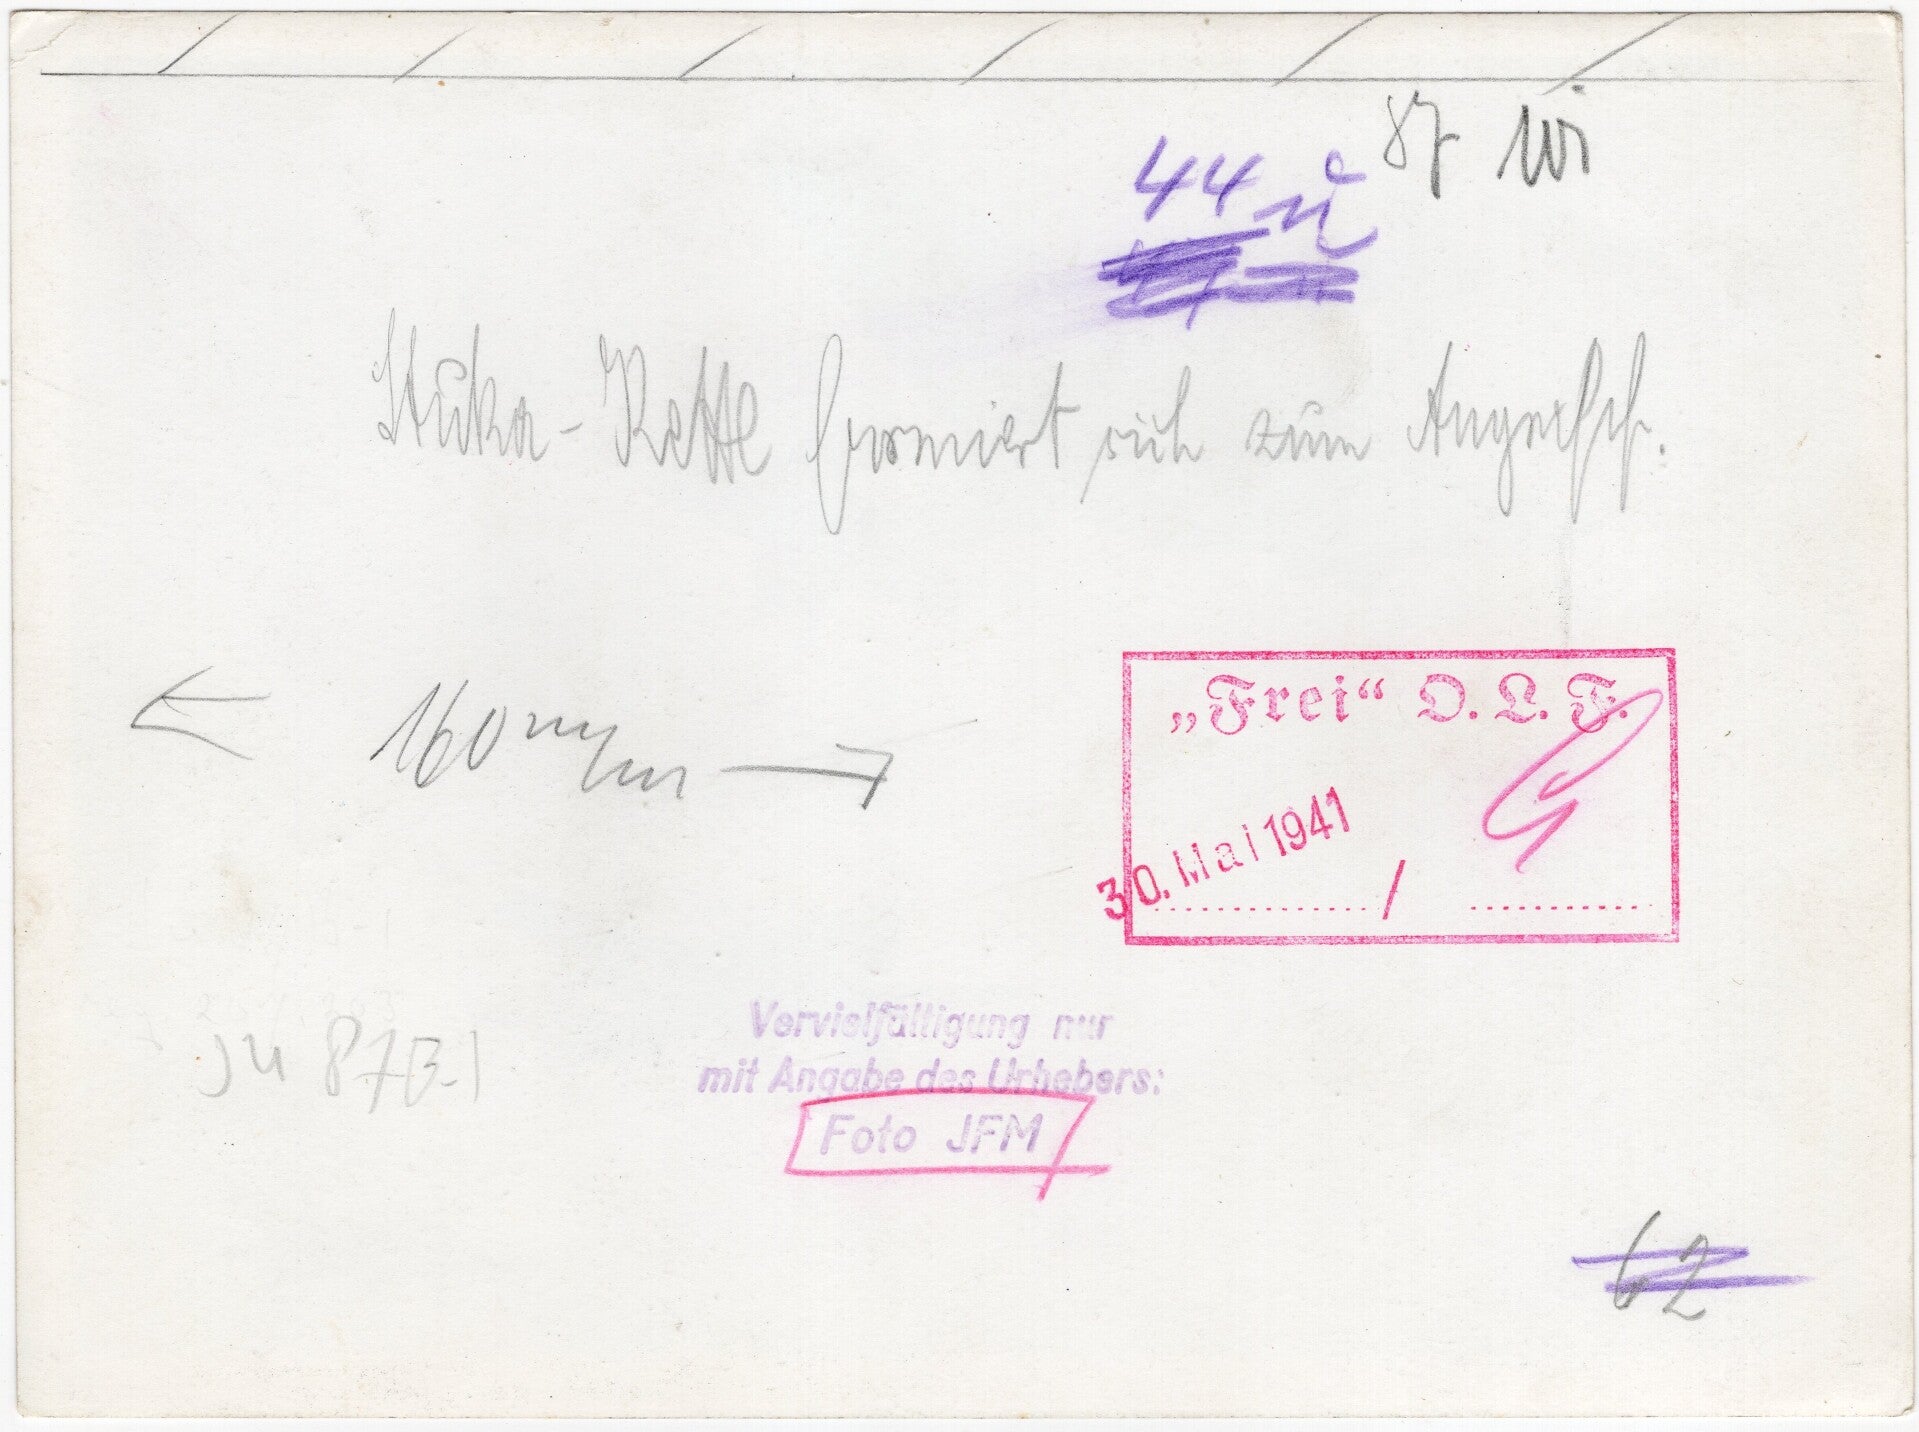 87 Wi
44 u
Stuka-Kette formiert sich zum Angriff.
160 m/m
„Frei“ O. L. F.
30. Mai 1941 /
Ju 87 B-1
Vervielfältigung nur
mit Angabe des Urhebers:
Foto JFM
62